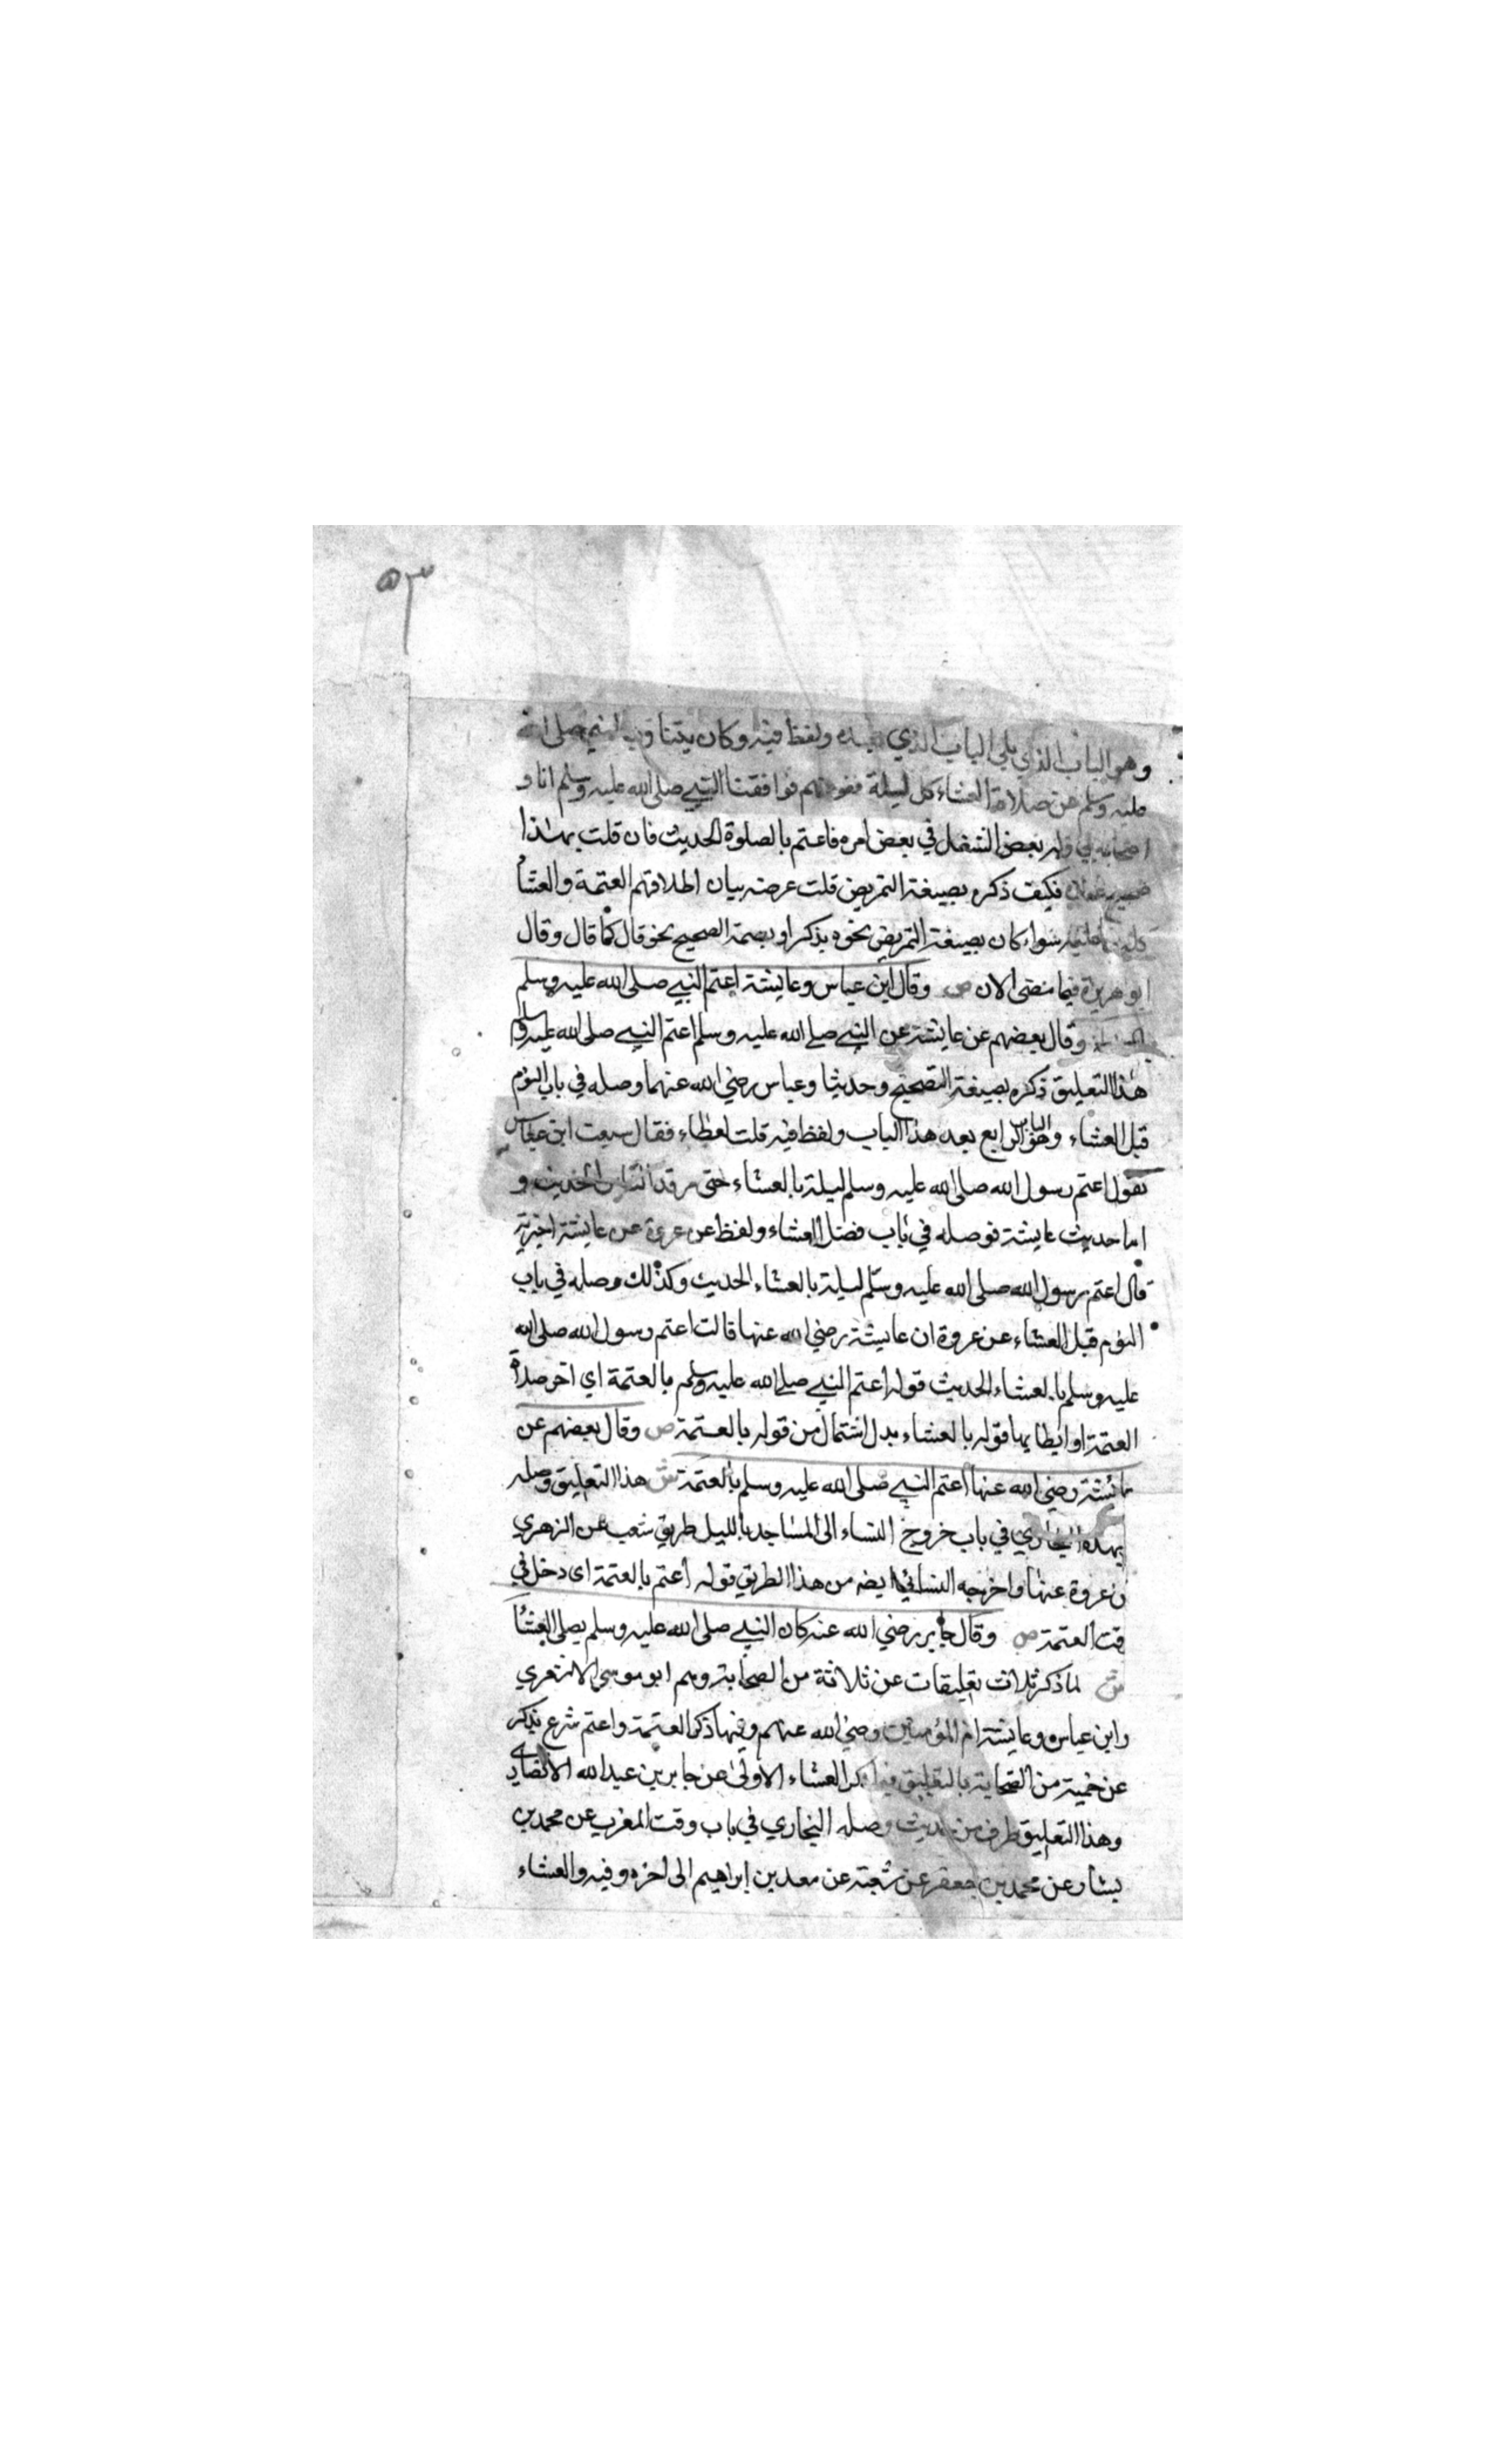 ٥٣
وهو الباب الذي يلي الباب الذي ولفظ فيه وكان يتناوب النبي صلى الله
عليه وسلم عن صلاة العشاء كل ليلة نفر منهم فوافقنا النبي صلى الله عليه وسلم انا و
اصحابي وله بعض الشغل في بعض امره فاعتم بالصلوة الحديث فان قلت بهذا
صحيح عنده فكيف ذكره بصيغة التمريض قلت غرضه بيان اطلاقهم العتمة والعشا
عليه سواء كان بصيغة التمريض نحوه يذكر او بصمة الصحيح نحو قال كما قال وقال
ابو هريرة فيما مضى الان ص وقال ابن عباس وعايشة اعتم النبي صلى الله عليه وسلم
وقال بعضهم عن عايشة عن النبي صلى الله عليه وسلم اعتم النبي صلى الله عليه وسلم
هذا التعليق ذكره بصيغة التصحيح وحديثا وعباس رضي الله عنهما وصله في باب النوم
قبل العشاء وهو الباب الرابع بعد هذا الباب ولفظ فيه قلت لعطاء فقال سمعت ابن عباس
يقول اعتم رسول الله صلى الله عليه وسلم ليلة بالعشاء حتى رقد الناس الحديث و
اما حديث عايشة فوصله في باب فضل العشاء ولفظ عن عروة عن عايشة اخبرته
قال اعتم رسول الله صلى الله عليه وسلم ليلة بالعشاء الحديث وكذلك وصله في باب
النوم قبل العشاء عن عروة ان عايشة رضي الله عنها قالت اعتم رسول الله صلى الله
عليه وسلم بالعشاء الحديث قوله اعتم النبي صلى الله عليه وسلم بالعتمة اي اخر صلاة
العتمة او ابطا بها قوله بالعشاء بدل اشتمال من قوله بالعتمة ص وقال بعضهم عن
عائشة رضي الله عنها اعتم النبي صلى الله عليه وسلم بالعتمة ش هذا التعليق وصله
بهذه البخاري في باب خروج النساء الى المساجد بالليل طريق شعيب عن الزهري
ن عروة عنها واخرجه النسائي ايضه من هذا الطريق قوله اعتم بالعتمة اى دخل في
قت العتمة ص وقال جابر رضي الله عنه كان النبي صلى الله عليه وسلم يصلي العشا
ش لما ذكر ثلاث تعليقات عن ثلاثة من الصحابة وهم ابو موسى الاشعري
وابن عباس وعايشة ام المؤمنين رضي الله عنهم وفيها ذكر العتمة واعتم شرع يذكر
عن خمسة من الصحابة بالتعليق فيها ذكر العشاء الاولى عن جابر بن عبد الله الانصاري
وهذا التعليق طرف من حديث وصله البخاري في باب وقت المغرب عن محمد بن
بشار عن محمد بن جعفر عن شعبة عن سعد بن ابراهيم الى اخره وفيه والعشاء